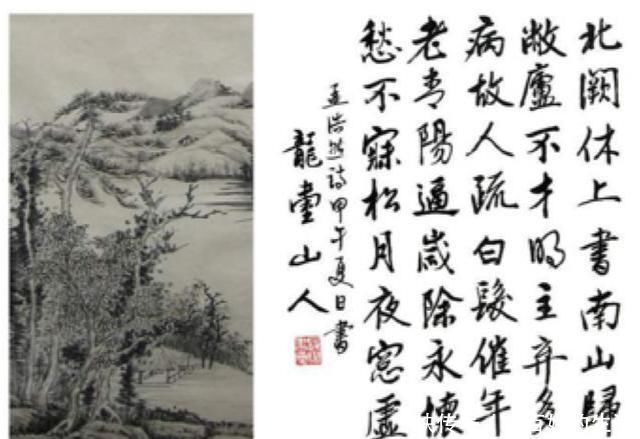 北闕休上書南山歸
敝廬不才明主弃多
病故人疏白髮催年
老青陽逼歲除永懷
愁不寐松月夜窓虛
孟浩然詩甲午夏日書
龍山人
快传